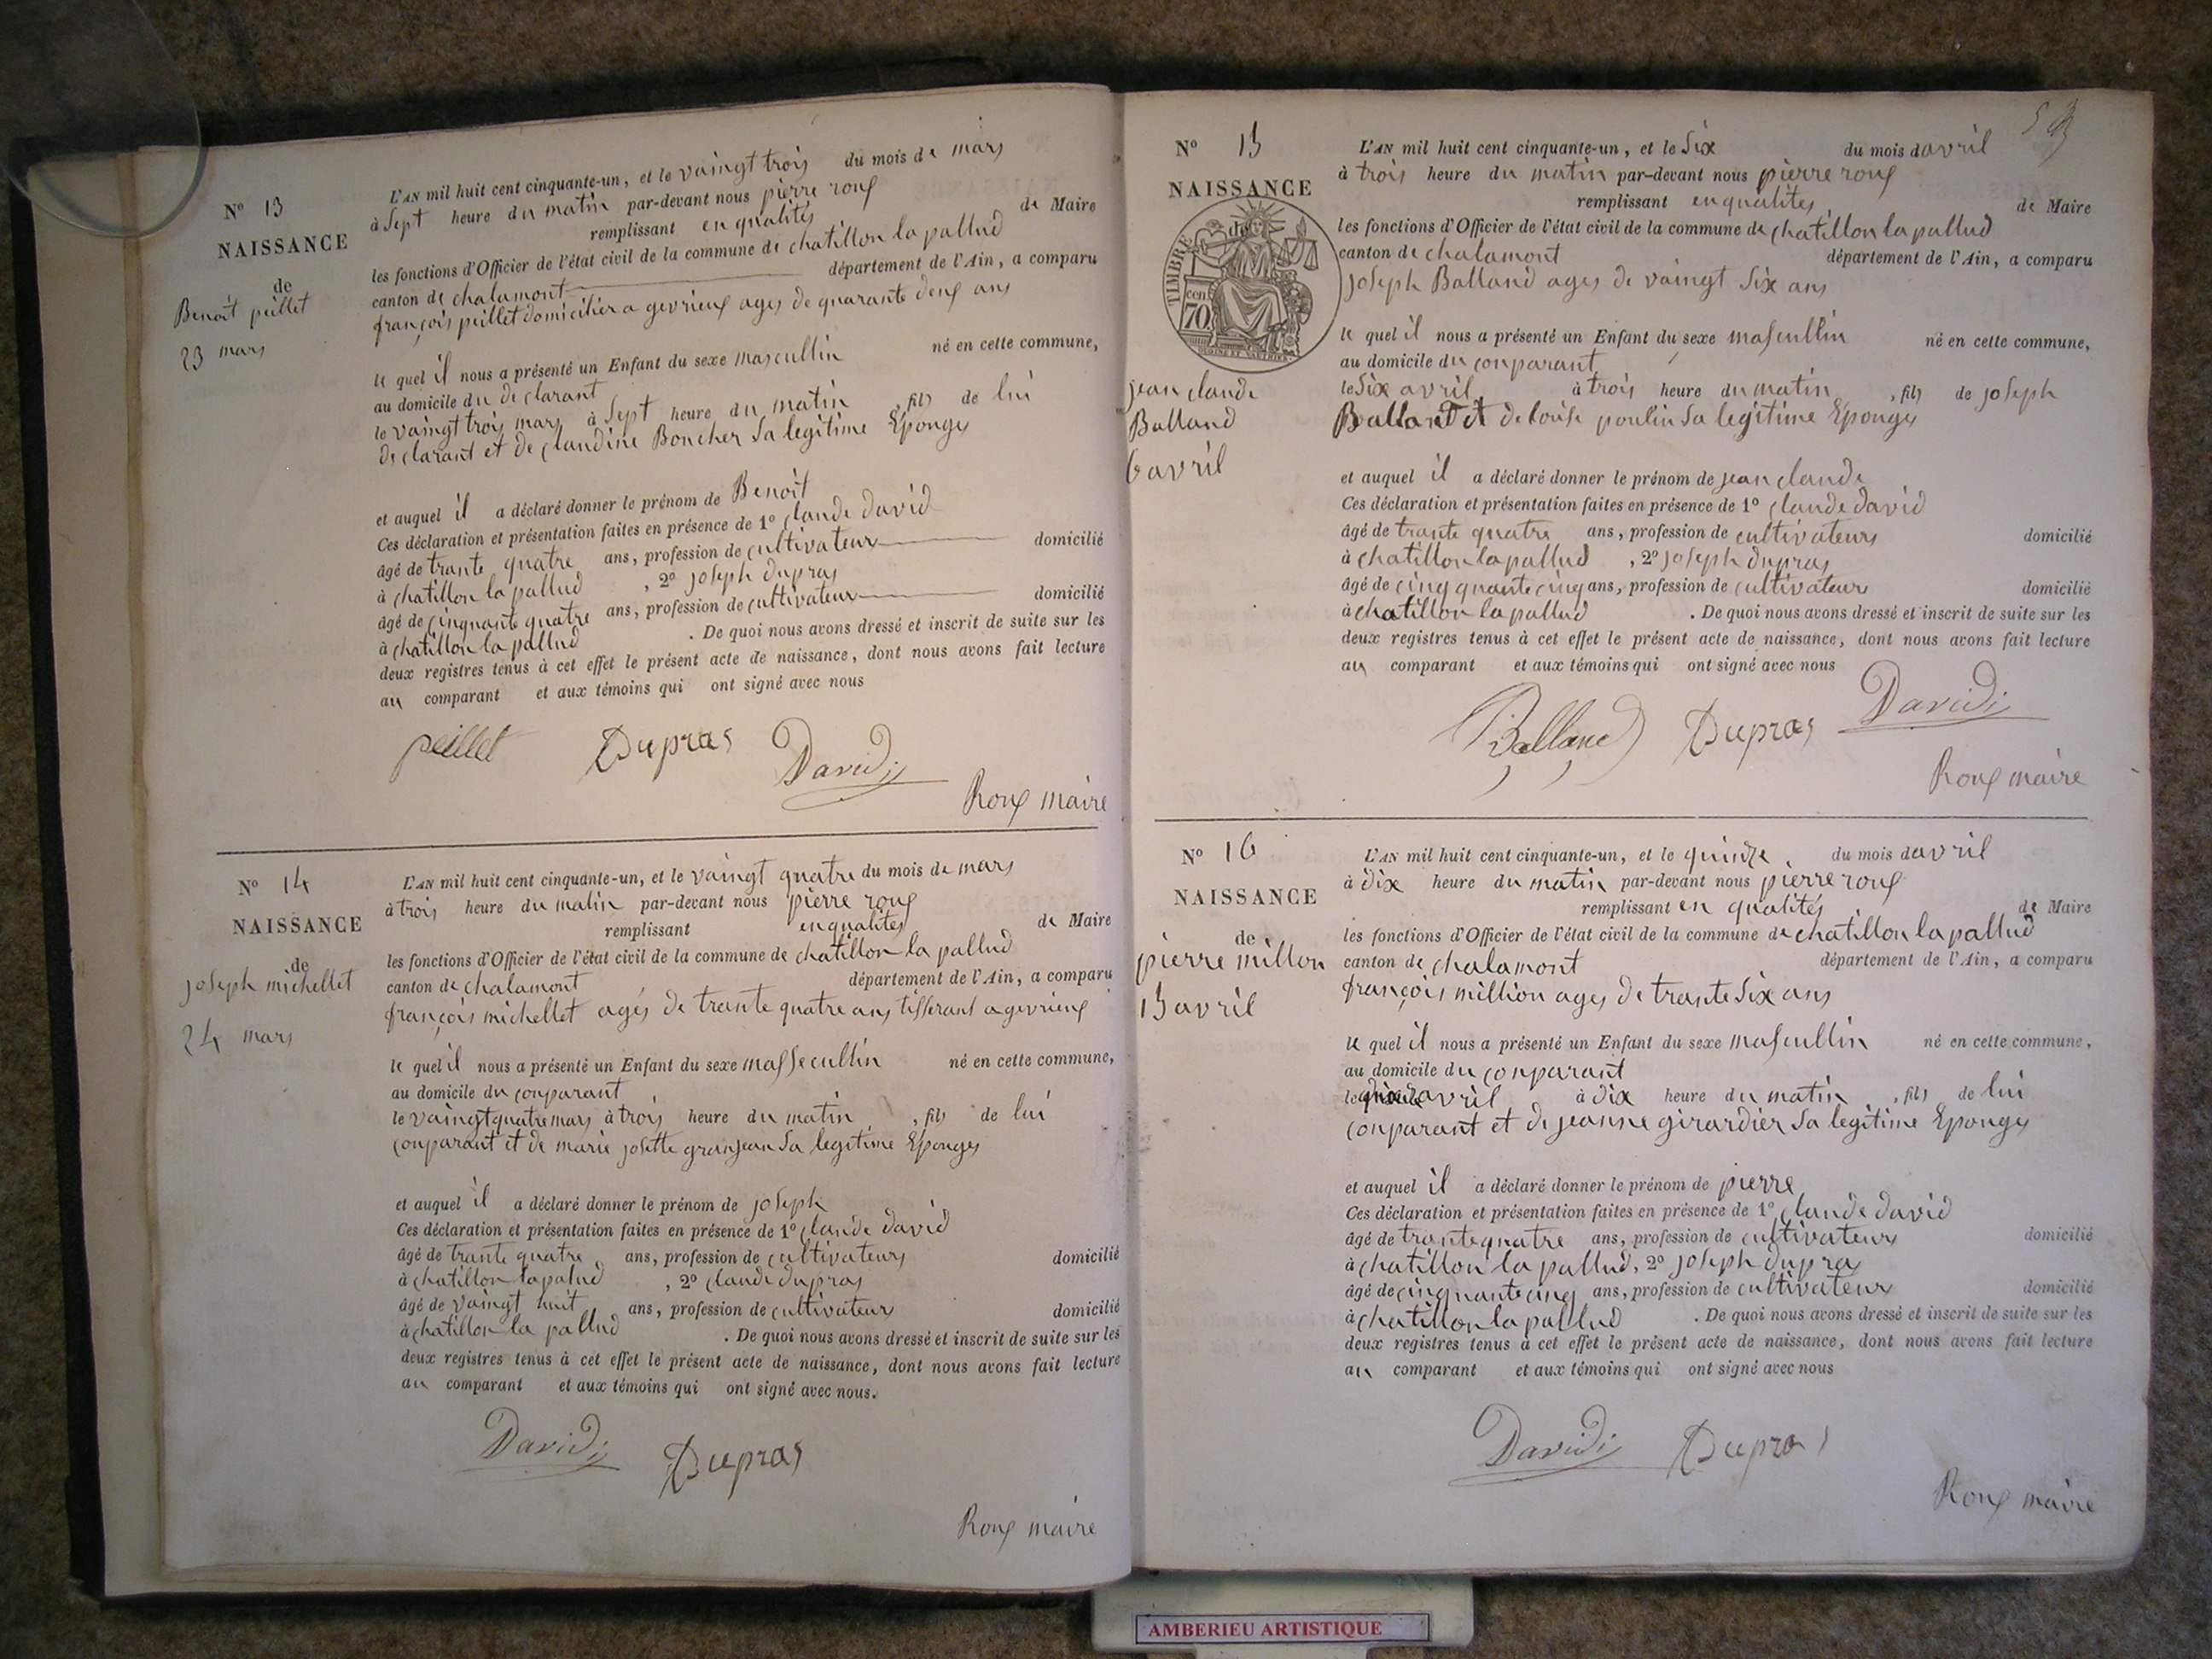 N° 13
NAISSANCE
de
Benoit peillet
23 mars
L'AN mil huit cent cinquante-un, et le vaingt trois du mois de mars
à sept heure du matin par-devant nous pierre roux
remplissant en qualités de Maire
les fonctions d'Officier de l'état civil de la commune de chatillon la pallud
canton de chalamont département de l'Ain, a comparu
françois peillet domicilier a gevrieux ages de quarante deux ans
le quel il nous a présenté un Enfant du sexe mascullin né en cette commune,
au domicile du declarant
le vaingt trois mars à sept heure du matin, fils de lui
declarant et de claudine Boncher sa legitime Epouges
et auquel il a déclaré donner le prénom de Benoit
Ces déclaration et présentation faites en présence de 1° claude david
âgé de trante quatre ans, profession de cultivateur domicilié
à chatillon la pallud, 2° joseph dupras
âgé de cinquante quatre ans, profession de cultivateur domicilié
à chatillon la pallud. De quoi nous avons dressé et inscrit de suite sur les
deux registres tenus à cet effet le présent acte de naissance, dont nous avons fait lecture
au comparant et aux témoins qui ont signé avec nous
peillet Dupras David
Roux maire
N° 14
NAISSANCE
de
joseph michellet
24 mars
L'AN mil huit cent cinquante-un, et le vaingt quatre du mois de mars
à trois heure du matin par-devant nous pierre roux
remplissant en qualités de Maire
les fonctions d'Officier de l'état civil de la commune de chatillon la pallud
canton de chalamont département de l'Ain, a comparu
françois michellet agés de trante quatre ans tisserant a gevrieux
le quel il nous a présenté un Enfant du sexe massecullin né en cette commune,
au domicile du conparant
le vaingt quatre mars à trois heure du matin, fils de lui
conparant et de marie josette granjean sa legitime Epouges
et auquel il a déclaré donner le prénom de joseph
Ces déclaration et présentation faites en présence de 1° claude david
âgé de trante quatre ans, profession de cultivateurs domicilié
à chatillon la palud, 2° claude dupras
âgé de vaingt huit ans, profession de cultivateur domicilié
à chatillon la pallud. De quoi nous avons dressé et inscrit de suite sur les
deux registres tenus à cet effet le présent acte de naissance, dont nous avons fait lecture
au comparant et aux témoins qui ont signé avec nous.
David Dupras
Roux maire
N° 15
NAISSANCE
de
TIMBRE
70 cen
jean claude
Balland
6 avril
L'AN mil huit cent cinquante-un, et le six du mois d avril
à trois heure du matin par-devant nous pierre roux
remplissant en qualités de Maire
les fonctions d'Officier de l'état civil de la commune de chatillon la pallud
canton de chalamont département de l'Ain, a comparu
joseph Balland ages de vaingt six ans
le quel il nous a présenté un Enfant du sexe mascullin né en cette commune,
au domicile du conparant
le six avril à trois heure du matin, fils de joseph
Balland et de louise poulin sa legitime Epouges
et auquel il a déclaré donner le prénom de jean claude
Ces déclaration et présentation faites en présence de 1° claude david
âgé de trante quatre ans, profession de cultivateurs domicilié
à chatillon la pallud, 2° joseph dupras
âgé de cinq quante cinq ans, profession de cultivateur domicilié
à chatillon la pallud. De quoi nous avons dressé et inscrit de suite sur les
deux registres tenus à cet effet le présent acte de naissance, dont nous avons fait lecture
au comparant et aux témoins qui ont signé avec nous
Balland Dupras David
Roux maire
N° 16
NAISSANCE
de
pierre millon
15 avril
L'AN mil huit cent cinquante-un, et le quinze du mois d avril
à dix heure du matin par-devant nous pierre roux
remplissant en qualités de Maire
les fonctions d'Officier de l'état civil de la commune de chatillon la pallud
canton de chalamont département de l'Ain, a comparu
françois million ages de trante six ans
le quel il nous a présenté un Enfant du sexe mascullin né en cette commune,
au domicile du conparant
le avril à dix heure du matin, fils de lui
conparant et de jeanne girardier sa legitime Epouges
et auquel il a déclaré donner le prénom de pierre
Ces déclaration et présentation faites en présence de 1° claude david
âgé de trante quatre ans, profession de cultivateurs domicilié
à chatillon la pallud, 2° joseph dupras
âgé de cinquante cinq ans, profession de cultivateur domicilié
à chatillon la pallud. De quoi nous avons dressé et inscrit de suite sur les
deux registres tenus à cet effet le présent acte de naissance, dont nous avons fait lecture
au comparant et aux témoins qui ont signé avec nous
David Dupras
Roux maire
AMBERIEU ARTISTIQUE